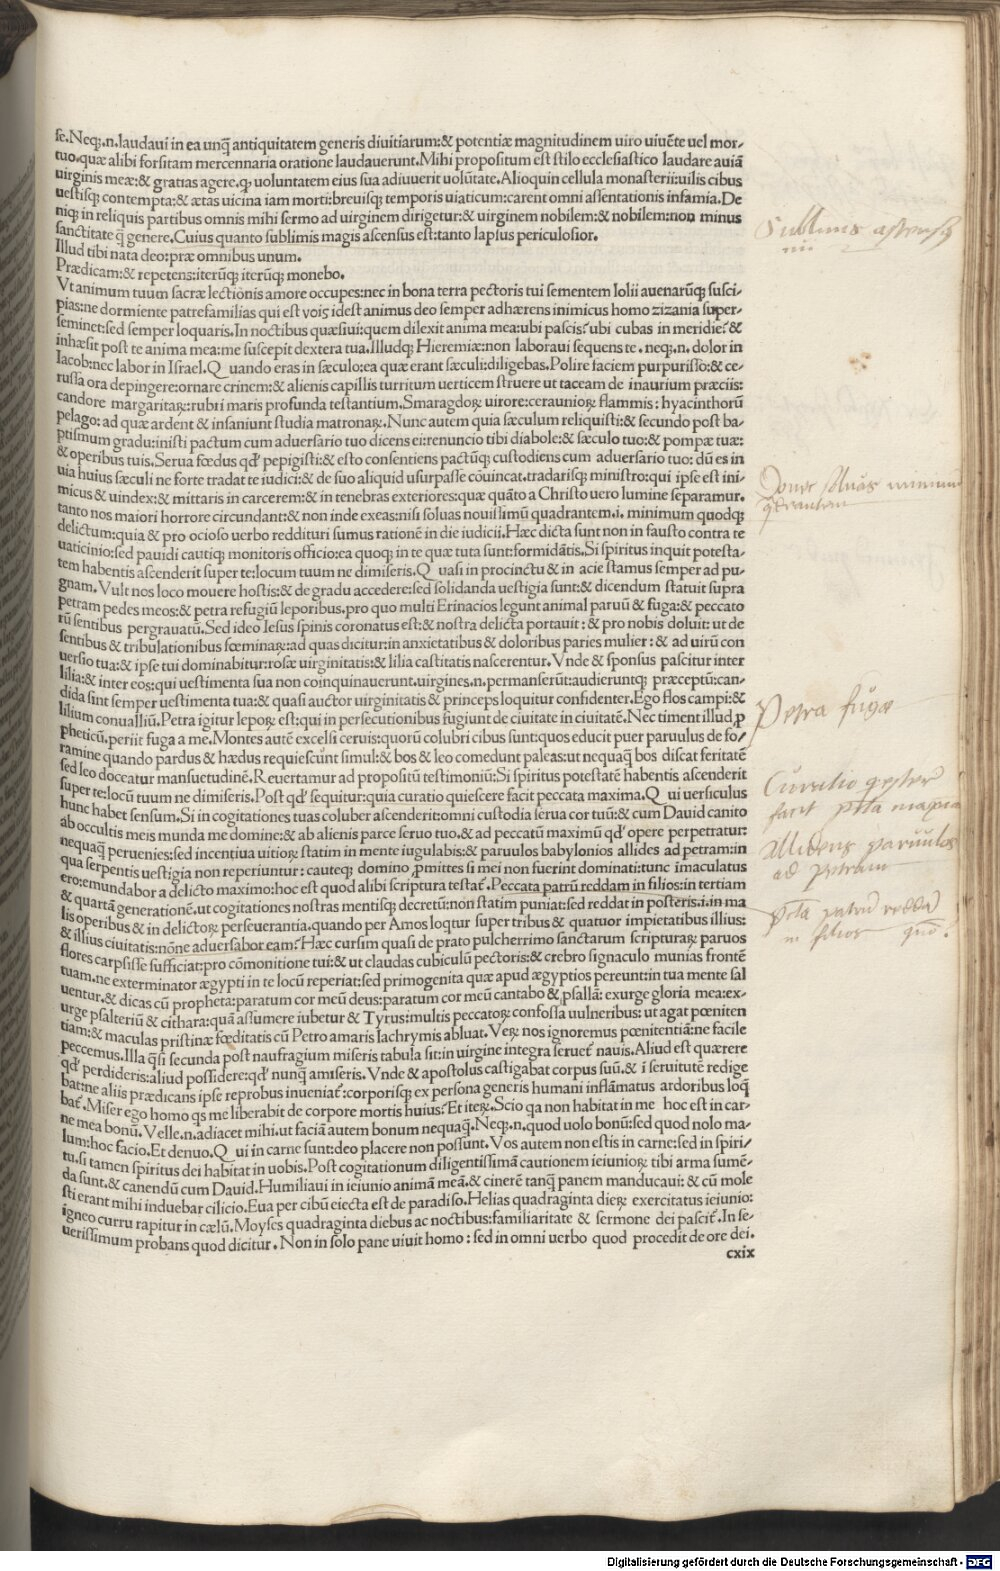 se. Neq;.n.laudaui in ea unq̃ antiquitatem generis diuitiarum:& potentiæ magnitudinem uiro uiuẽte uel mor-
tuo.quæ alibi forsitam mercennaria oratione laudauerunt. Mihi propositum est stilo ecclesiastico laudare auiã
uirginis meæ:& gratias agere.q; uoluntatem eius sua adiuuerit uolũtate. Alioquin cellula monasterii:uilis cibus
uestisq; contempta:& ætas uicina iam morti:breuisq; temporis uiaticum:carent omni assentationis infamia. De
niq; in reliquis partibus omnis mihi sermo ad uirginem dirigetur:& uirginem nobilem:& nobilem:non minus
sanctitate q̃ genere. Cuius quanto sublimis magis ascensus est:tanto lapsus periculosior.
Illud tibi nata deo:præ omnibus unum.
Prædicam:& repetens:iterũq; iterũq; monebo.
Vt animum tuum sacræ lectionis amore occupes:nec in bona terra pectoris tui sementem lolii auenarũq; susci-
pias:ne dormiente patrefamilias qui est voiς idest animus deo semper adhærens inimicus homo zizania super-
seminet:sed semper loquaris. In noctibus quæsiui:quem dilexit anima mea:ubi pascis? ubi cubas in meridie? &
inhæsit post te anima mea:me suscepit dextera tua. Illudq; Hieremiæ:non laboraui sequens te. neq;.n. dolor in
Iacob:nec labor in Israel. Quando eras in sæculo:ea quæ erant sæculi:diligebas. Polire faciem purpurisso:& ce-
russa ora depingere:ornare crinem:& alienis capillis turritum uerticem struere ut taceam de inaurium præciis:
candore margaritaꝝ:rubri maris profunda testantium. Smaragdoꝝ uirore:cerauniorꝝ flammis: hyacinthorũ
pelago: ad quæ ardent & insaniunt studia matronaꝝ. Nunc autem quia sæculum reliquisti:& secundo post ba-
ptismum gradu:inisti pactum cum aduersario tuo dicens ei:renuncio tibi diabole:& sæculo tuo:& pompæ tuæ:
& operibus tuis. Serua fœdus qđ pepigisti:& esto consentiens pactũq; custodiens cum aduersario tuo: dũ es in
uia huius sæculi ne forte tradat te iudici:& de suo aliquid usurpasse cõuincat.tradarisq; ministro:qui ipse est ini-
micus & uindex:& mittaris in carcerem:& in tenebras exteriores:quæ quãto a Christo uero lumine separamur.
tanto nos maiori horrore circundant:& non inde exeas:nisi soluas nouissimũ quadrantem.i. minimum quodq;
delictum:quia & pro ocioso uerbo reddituri sumus rationẽ in die iudicii. Hæc dicta sunt non in fausto contra te
uaticinio:sed pauidi cautiq; monitoris officio:ea quoq; in te quæ tuta sunt:formidãtis. Si spiritus inquit potesta-
tem habentis ascenderit super te:locum tuum ne dimiseris. Quasi in procinctu & in acie stamus semper ad pu-
gnam. Vult nos loco mouere hostis:& de gradu accedere:sed solidanda uestigia sunt:& dicendum statuit supra
petram pedes meos:& petra refugiũ leporibus.pro quo multi Erinacios legunt animal paruũ & fuga:& peccato
rũ sentibus pergrauatũ. Sed ideo Iesus spinis coronatus est:& nostra delicta portauit:& pro nobis doluit:ut de
sentibus & tribulationibus fœminaꝝ:ad quas dicitur:in anxietatibus & doloribus paries mulier:& ad uirũ con
uersio tua:& ipse tui dominabitur:rosæ uirginitatis:& lilia castitatis nascerentur. Vnde & sponsus pascitur inter
lilia:& inter eos:qui uestimenta sua non coinquinauerunt.uirgines.n.permanserũt:audieruntq; præceptũ:can-
dida sint semper uestimenta tua:& quasi auctor uirginitatis & princeps loquitur confidenter. Ego flos campi:&
lilium conualliũ. Petra igitur leporꝝ est:qui in persecutionibus fugiunt de ciuitate in ciuitatẽ. Nec timent illud ꝓ
pheticũ.periit fuga a me. Montes autẽ excelsi ceruis:quorũ colubri cibus sunt:quos educit puer paruulus de fo-
ramine quando pardus & hædus requiescũt simul:& bos & leo comedunt paleas:ut nequaq̃ bos discat feritatẽ
sed leo doceatur mansuetudinẽ. Reuertamur ad propositũ testimoniũ: Si spiritus potestatẽ habentis ascenderit
super te:locũ tuum ne dimiseris. Post qđ sequitur:quia curatio quiescere facit peccata maxima. Qui uersiculus
hunc habet sensum. Si in cogitationes tuas coluber ascenderit:omni custodia serua cor tuũ:& cum Dauid canito
ab occultis meis munda me domine:& ab alienis parce seruo tuo.& ad peccatũ maximũ qđ opere perpetratur:
nequaq̃ peruenies:sed incentiua uitiorꝝ statim in mente iugulabis:& paruulos babylonios allides ad petram:in
qua serpentis uestigia non reperiuntur: cauteq; domino ꝓmittes si mei non fuerint dominati:tunc ĩmaculatus
ero:emundabor a delicto maximo:hoc est quod alibi scriptura testat̃. Peccata patrũ reddam in filios:in tertiam
& quartã generationẽ.ut cogitationes nostras mentisq; decretũ:non statim puniat:sed reddat in posteris.i.in ma
lis operibus & in delictorꝝ perseuerantia.quando per Amos loqtur super tribus & quatuor impietatibus illius:
& illius ciuitatis:nõne aduersabor eam? Hæc cursim quasi de prato pulcherrimo sanctarum scripturaꝝ paruos
flores carpsisse sufficiat:pro cõmonitione tui:& ut claudas cubiculũ pectoris:& crebro signaculo munias frontẽ
tuam.ne exterminator ægypti in te locũ reperiat:sed primogenita quæ apud ægyptios pereunt:in tua mente sal
uentur.& dicas cũ propheta:paratum cor meũ deus:paratum cor meũ cantabo & psallã: exurge gloria mea:ex-
urge psalteriũ & cithara:quã assumere iubetur & Tyrus:multis peccatoꝝ confossa uulneribus: ut agat pœniten
tiam:& maculas pristinæ fœditatis cũ Petro amaris lachrymis abluat. Veꝝ nos ignoremus pœnitentiã:ne facile
peccemus. Illa q̃si secunda post naufragium miseris tabula sit:in uirgine integra seruet̃ nauis. Aliud est quærere
qđ perdideris:aliud possidere:qđ nunq̃ amiseris. Vnde & apostolus castigabat corpus suũ.& ĩ seruitutẽ redige
bat:ne aliis prædicans ipse reprobus inueniat̃:corporisq; ex persona generis humani inflãmatus ardoribus loq̃
bat̃. Miser ego homo qs me liberabit de corpore mortis huius? Et iteꝝ. Scio qa non habitat in me hoc est in car-
ne mea bonũ. Velle.n.adiacet mihi.ut faciã autem bonum nequaq̃. Neq;.n.quod uolo bonũ:sed quod nolo ma-
lum:hoc facio. Et denuo. Qui in carne sunt:deo placere non possunt. Vos autem non estis in carne:sed in spiri-
tu.si tamen spiritus dei habitat in uobis. Post cogitationum diligentissimã cautionem ieiuniorꝝ tibi arma sumẽ-
da sunt.& canendũ cum Dauid. Humiliaui in ieiunio animã meã.& cinerẽ tanq̃ panem manducaui:& cũ mole
sti erant mihi induebar cilicio. Eua per cibũ eiecta est de paradiso. Helias quadraginta dierꝝ exercitatus ieiunio:
igneo curru rapitur in cælũ. Moyses quadraginta diebus ac noctibus:familiaritate & sermone dei pascit̃. In se-
uerissimum probans quod dicitur. Non in solo pane uiuit homo: sed in omni uerbo quod procedit de ore dei.
cxix
Sublimis ascensus
Donec soluas minimum
qdrantem
Petra fugæ
Curatio qescere
facit pcta maxima
allidens paruulos
ad petram
Pcta patrũ reddã
in filios quo?
Digitalisierung gefördert durch die Deutsche Forschungsgemeinschaft - DFG